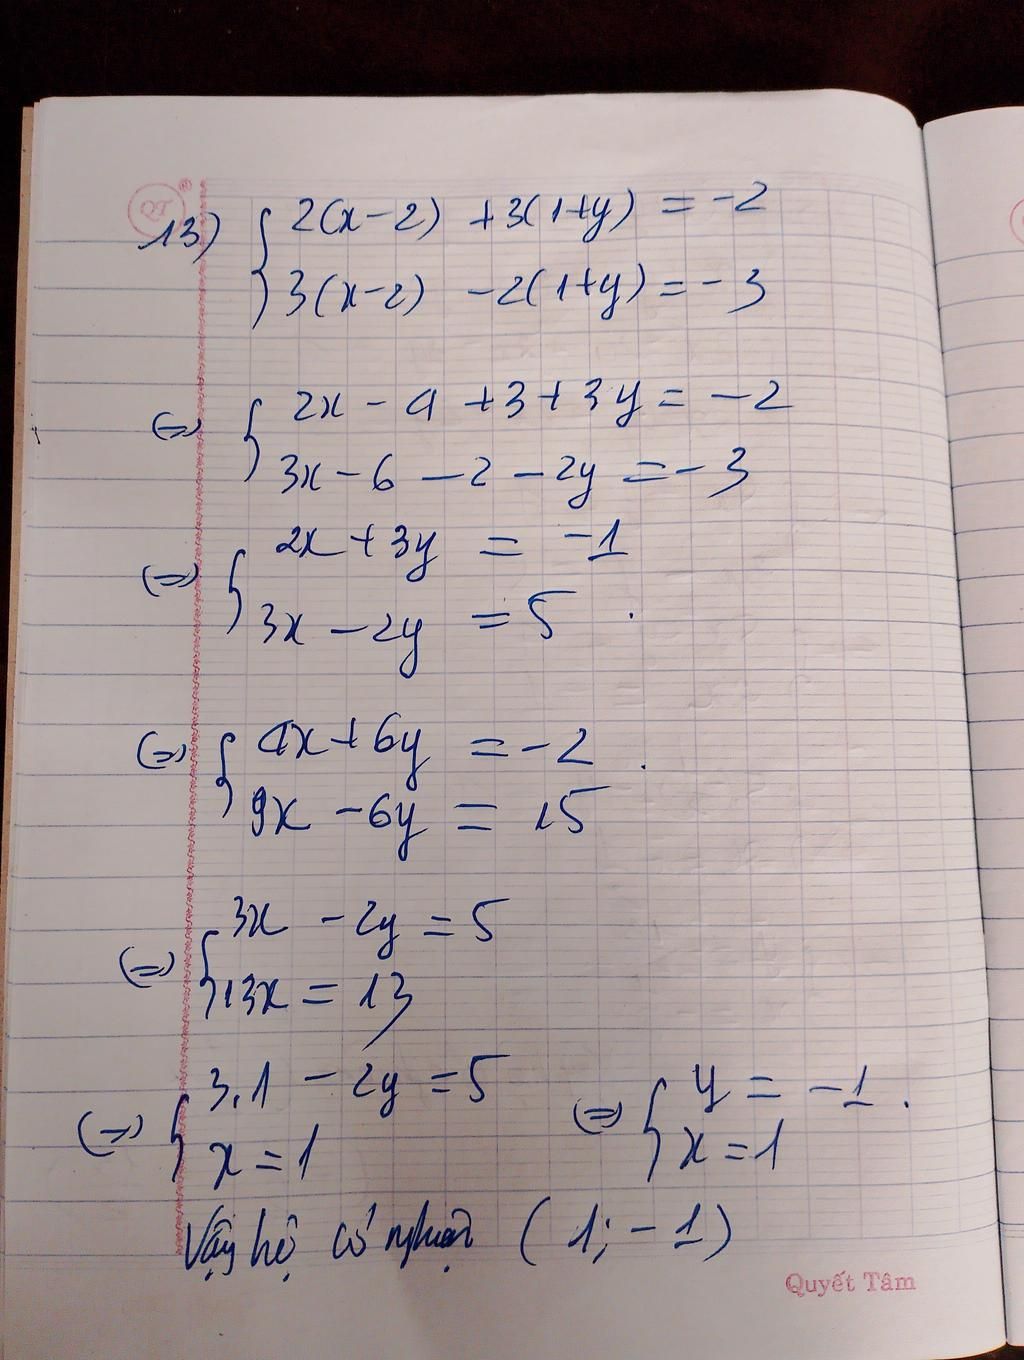 QT ®
13) { 2(x-2) +3(1+y) = -2
3(x-2) -2(1+y) = -3
(=) { 2x - 4 +3+3y = -2
3x - 6 - 2 - 2y = -3
(=) { 2x + 3y = -1
3x - 2y = 5 .
(=) { 4x + 6y = -2 .
9x - 6y = 15
(=) { 3x - 2y = 5
13x = 13
(=) { 3.1 - 2y = 5 (=) { y = -1 .
x = 1 x = 1
Vậy hệ có nghiệm (1; -1)
Quyết Tâm